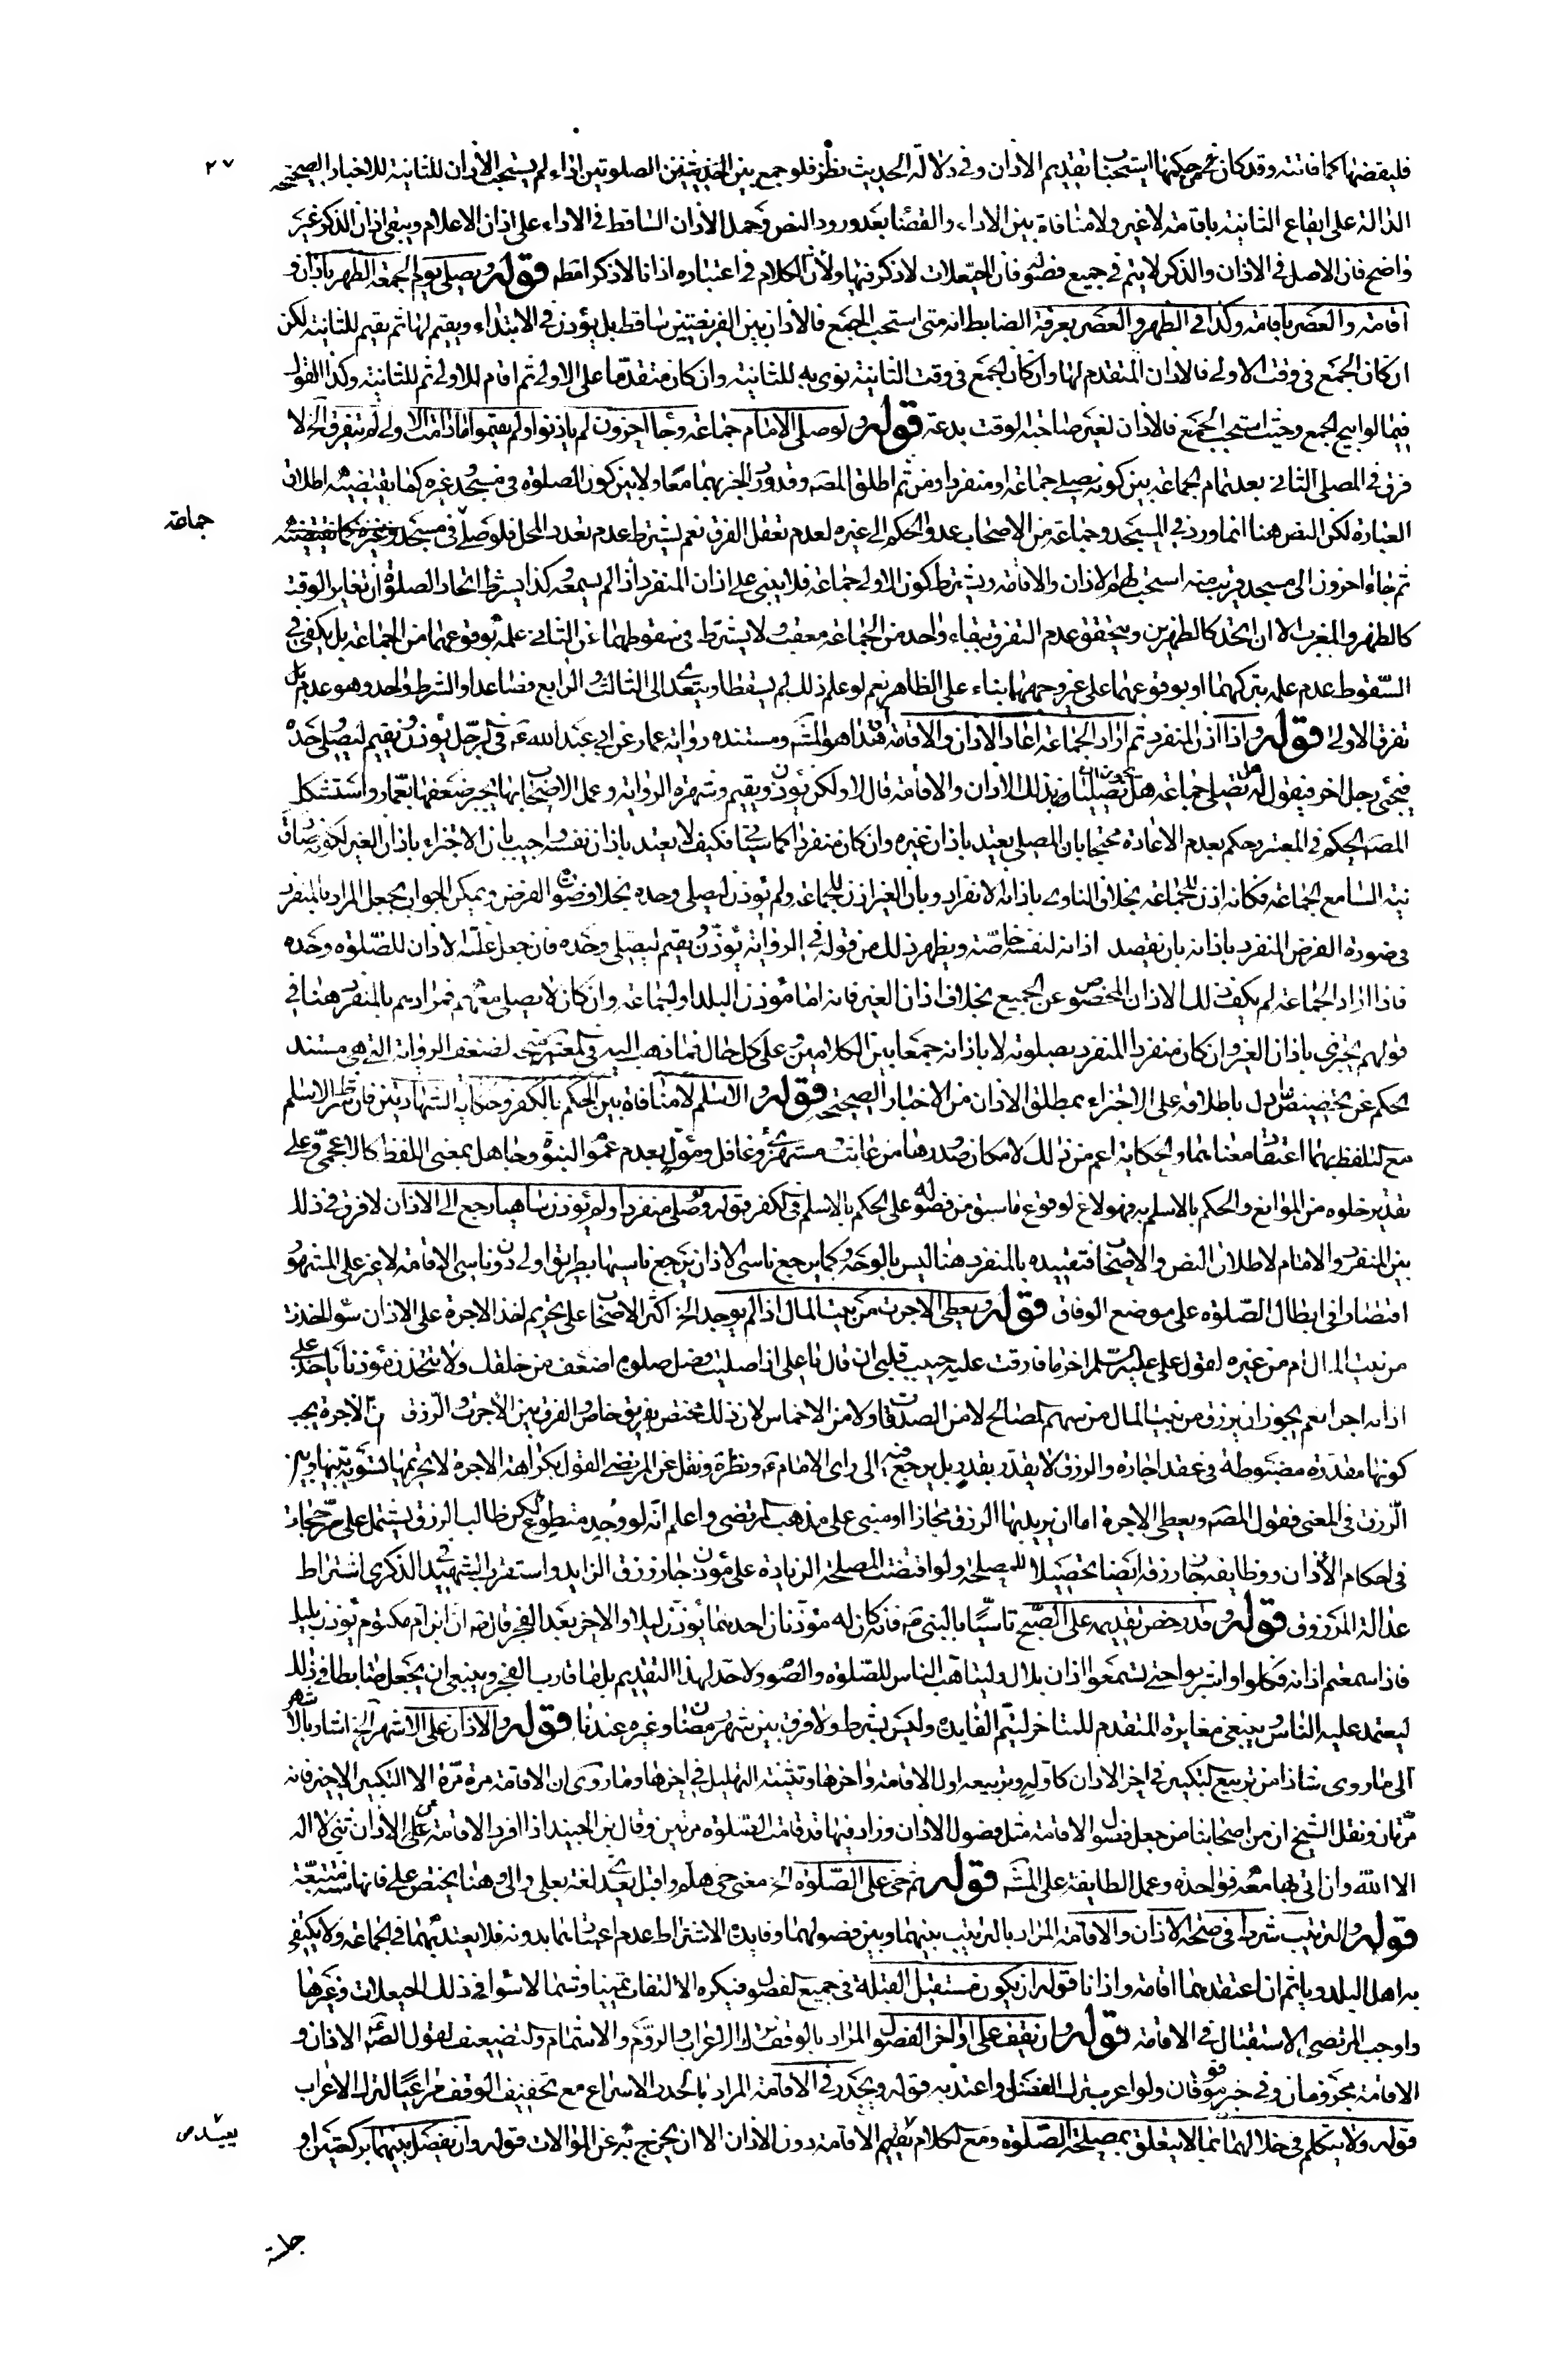 فليقضها كما فاتته وقد كان من حكمها استحباب تقديم الاذان وفي دلالة الحديث نظر فلو جمع بين الصلوتين اداء لم يستحب الاذان للثانية للاخبار الصحيحة
٢٧
الدالة على ايقاع الثانية باقامة لا غير ولا منافاة بين الاداء والقضا بعد ورود النص وحمل الاذان الساقط في الاداء على اذان الاعلام ويبقى اذان الذكر غير
واضح فان الاصل في الاذان والذكر لا يتم في جميع فصوله فان الحيعلات لا ذكر فيها ولان الكلام في اعتباره اذانا لا ذكرا فقط قوله ويصلي يوم الجمعة الظهر باذان و
اقامة والعصر باقامة وكذا في الظهر والعصر بعرفة الضابط انه متى استحب الجمع فالاذان بين الفريضتين ساقط بل يؤذن في الابتداء ويقيم لها ثم يقيم للثانية لكن
ان كان الجمع في وقت الاولى فالاذان المتقدم لها وان كان الجمع في وقت الثانية نوى به للثانية وان كان متقدما على الاولى ثم اقام للاولى ثم للثانية وكذا القول
فيما لو ابيح الجمع وحيث استحب الجمع فالاذان لغير صاحبة الوقت بدعة قوله ولو صلى الامام جماعة وجا اخرون لم يؤذنوا ولم يقيموا ما دامت الاولى لم تتفرق الخ لا
فرق في المصلي الثاني بعد تمام الجماعة بين كونه يصلي جماعة او منفردا ومن ثم اطلق المصـ وقد ورد الخبر بهما معا ولا بين كون الصلوة في مسجد وغيره كما يقتضيه اطلاق
العبارة لكن النص هنا انما ورد في المسجد وجماعة من الاصحاب عدوا الحكم الى غيره لعدم تعقل الفرق نعم يشترط عدم تعدد المحل فلو صلى في مسجد وغيره كما يقتضيه
جماعة
ثم جاء اخرون الى مسجد قريب منه استحب لهم الاذان والاقامة ويشترط كون الاولى جماعة فلا يبني على اذان المنفرد اذا لم يسمعه وكذا يشترط اتحاد الصلوة او تغاير الوقت
كالظهر والمغرب لا ان اتحد كالظهرين ويتحقق عدم التفرق ببقاء واحد من الجماعة معقب ولا يشترط في سقوطهما عن الثاني علمه بوقوعهما من الجماعة بل يكفي في
السقوط عدم علمه بتركهما او بوقوعهما على غير وجههما بناء على الظاهر نعم لو علم ذلك لم يسقطا ويتعدى الى الثالث والرابع فصاعدا والشرط واحد وهو عدم
تفرق الاولى قوله واذا اذن المنفرد ثم اراد الجماعة اعاد الاذان والاقامة هذا هو المشـ ومستنده رواية عمار عن ابي عبد الله ع في الرجل يؤذن ويقيم ليصلي وحده
فيجئ رجل اخر فيقول له نصلي جماعة هل يجوز ان يصليا بذلك الاذان والاقامة قال لا ولكن يؤذن ويقيم وشهرة الرواية وعمل الاصحاب بها يجبر ضعفها بعمار واستشكل
المصـ الحكم في المعتبر بحكم بعدم الاعادة محتجا بان المصلي يعتد باذان غيره وان كان منفردا كما سيأتي فكيف لا يعتد باذان نفسه واجيب بان الاجتزاء باذان الغير لكونه صادف
نية السامع الجماعة فكانه اذن للجماعة بخلاف الناوي باذانه الانفراد وبان الغير اذن للجماعة ولم يؤذن ليصلي وحده بخلاف صورة الفرض ويمكن الجواب بجعل المراد بالمنفرد
في صورة الفرض المنفرد باذانه بان يقصد اذانه لنفسه خاصة ويظهر ذلك من قوله في الرواية يؤذن ويقيم ليصلي وحده فان جعل علة الاذان للصلوة وحده
فاذا اراد الجماعة لم يكف ذلك الاذان المخصوص عن الجميع بخلاف اذان الغير فانه اما مؤذن البلد او لجماعة وان كان لا يصلي معهم فمرادهم بالمنفرد هنا في
قولهم يجزي باذان الغير وان كان منفردا المنفرد بصلوته لا باذانه جمعا بين الكلامين وعلى كل حال فما ذهب اليه في المعتبر لضعف الرواية التي هي مستند
الحكم عن تخصيص ما دل باطلاقه على الاجتزاء بمطلق الاذان من الاخبار الصحيحة قوله والاسلام لا منافاة بين الحكم بالكفر وحكاية الشهادتين فان شرط الاسلام
مع التلفظ بهما اعتقاد معناهما والحكاية اعم من ذلك لامكان صدورها من عابث ومستهزئ وغافل ومؤول بعدم عموم النبوة وجاهل بمعنى اللفظ كالاعجمي وعلى
تقدير خلوه من الموانع والحكم بالاسلام به فهو لاغ لوقوع ما سبق من فصوله على الحكم بالاسلام في الكفر قوله ولو صلى منفردا ولم يؤذن ساهيا رجع الى الاذان لا فرق في ذلك
بين المنفرد والامام لاطلاق النص والاصحاب فتقييده بالمنفرد هنا ليس بالوجه وكما يرجع ناسي الاذان يرجع ناسيهما بطريق اولى دون ناسي الاقامة لا غير على المشهور
اقتصارا في ابطال الصلوة على موضع الوفاق قوله ويعطى الاجرة من بيت المال اذا لم يوجد الخ اكثر الاصحاب على تحريم اخذ الاجرة على الاذان سواء اخذت
من بيت المال ام من غيره لقول علي عليه السلام اخر ما فارقت عليه حبيب قلبي ان قال يا علي اذا صليت فصل صلوة اضعف من خلفك ولا تتخذن مؤذنا ياخذ على
اذانه اجرا نعم يجوز ان يرزق من بيت المال من سهم المصالح لا من الصدقات ولا من الاخماس لان ذلك مختص بفريق خاص والفرق بين الاجرة والرزق ان الاجرة يجب
كونها مقدرة مضبوطة في عقد اجارة والرزق لا يقدر بقدر بل يرجع فيه الى راي الامام ع ونظره ونقل عن المرتضى القول بكراهة الاجرة لا تحريمها لتسوية بينها وبين
الرزق في المعنى فقول المصـ ويعطى الاجرة اما ان يريد بها الرزق مجازا او مبني على مذهب المرتضى واعلم انه لو وجد متطوع لكن طالب الرزق يشتمل على مرجحات
في احكام الاذان ووظايفه جاز رزقه ايضا تحصيلا للمصلحة ولو اقتضت المصلحة الزيادة على مؤذن جاز رزق الزايد واستقرب الشهيد في الذكرى اشتراط
عدالة المرزوق قوله وقد رخص تقديمه على الصبح تاسيا بالنبي ص فانه كان له مؤذنان احدهما يؤذن ليلا والاخر بعد الفجر قال ص ان ابن ام مكتوم يؤذن بليل
فاذا سمعتم اذانه فكلوا واشربوا حتى تسمعوا اذان بلال وليتاهب الناس للصلوة والصوم ولا حد لهذا التقديم بل ما قارب الفجر وينبغي ان يجعل ضابطا في ذلك
ليعتمد عليه الناس وينبغي مغايرة المتقدم للمتاخر ليتم الفايدة وليس بشرط ولا فرق بين شهر رمضان وغيره عندنا قوله والاذان على الاشهر الخ اشار بالاشهر
الى ما روي شاذا من تربيع التكبير في اخر الاذان كاوله وتربيعه اول الاقامة واخرها وتثنية التهليل في اخرها وما روي ان الاقامة مرة مرة الا التكبير الاخير فانه
مرتان ونقل الشيخ ان من اصحابنا من جعل فصول الاقامة مثل فصول الاذان وزاد فيها قد قامت الصلوة مرتين وقال ابن الجنيد اذا افرد الاقامة عن الاذان ثنى لا اله
الا الله وان اتى بها معه فواحدة وعمل الطايفة على المشـ قوله ثم حي على الصلوة الخ معنى حي هلم واقبل يعدى لغة بعلى والى وهنا يختص على فانها متبعة
قوله والترتيب شرط في صحة الاذان والاقامة المراد بالترتيب بينهما وبين فصولهما وفايدة الاشتراط عدم اعتبارهما بدونه فلا يعتد بهما في الجماعة ولا يكتفي
به اهل البلد وياثم ان اعتقدهما اقامة واذانا قوله ان يكون مستقبل القبلة في جميع الفصول فيكره الالتفات يمينا وشمالا سواء في ذلك الحيعلات وغيرها
واوجب المرتضى الاستقبال في الاقامة قوله وان يقف على اواخر الفصول المراد بالوقف ترك الاعراب والروم والاشمام والتضعيف لقول الصـ الاذان و
الاقامة مجزومان وفي خبر موقوفان ولو اعرب ترك الفضل واعتد به قوله ويحدر في الاقامة المراد بالحدر الاسراع مع تخفيف الوقف مراعيا لترك الاعراب
قوله ولا يتكلم في خلالهما بما لا يتعلق بمصلحة الصلوة ومع الكلام الاقامة دون الاذان الا ان يخرج به عن الموالات قوله وان يفصل بينهما بركعتين او
يعيد ص
جلسة